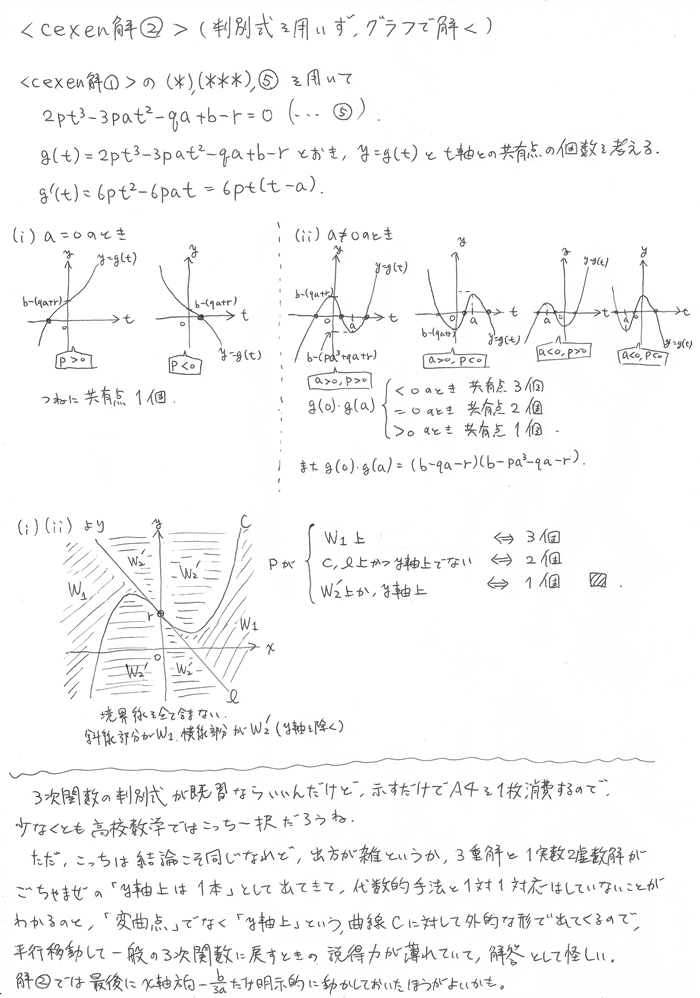 <cexen解②>(判別式を用いず,グラフで解く)
<cexen解①>の(*),(***),⑤ を用いて
2pt³-3pat²-qa+b-r=0 (… ⑤).
g(t)=2pt³-3pat²-qa+b-r とおき, y=g(t)とt軸との共有点の個数を考える.
g'(t)=6pt²-6pat=6pt(t-a).
(i) a=0のとき
y
y=g(t)
b-(qa+r)
0
t
p>0
y
b-(qa+r)
0
t
y=g(t)
p<0
つねに共有点1個.
(ii) a≠0のとき
y
y=g(t)
b-(qa+r)
0
a
t
b-(pa³+qa+r)
a>0, p>0
y
b-(qa+r)
0
a
t
y=g(t)
a>0, p<0
y
y=g(t)
a
0
t
a<0, p>0
y
a
0
t
y=g(t)
a<0, p<0
g(0)・g(a)
<0のとき 共有点3個
=0のとき 共有点2個
>0のとき 共有点1個.
また g(0)・g(a)=(b-qa-r)(b-pa³-qa-r).
(i)(ii)より
y
C
W₂'
W₂'
W₁
r
W₁
x
0
W₂'
W₂'
l
境界線を全て含まない.
斜線部分がW₁,横線部分がW₂'(y軸を除く)
Pが
W₁上 ⇔ 3個
C, l上かつy軸上でない ⇔ 2個
W₂'上か,y軸上 ⇔ 1個 .
3次関数の判別式が既習ならいいんだけど,示すだけでA4を1枚消費するので,
少なくとも高校数学ではこっち一択だろうね.
ただ,こっちは結論こそ同じなれど,出方が雑というか,3重解と1実数2虚数解が
ごちゃまぜの「y軸上は1本」として出てきて,代数的手法と1対1対応はしていないことが
わかるのと,「変曲点」でなく「y軸上」という,曲線Cに対して外的な形で出てくるので,
平行移動して一般の3次関数に戻すときの説得力が薄れていて,解答として怪しい.
解②では最後にx軸方向-b/3aだけ明示的に動かしておいたほうがよいかも.